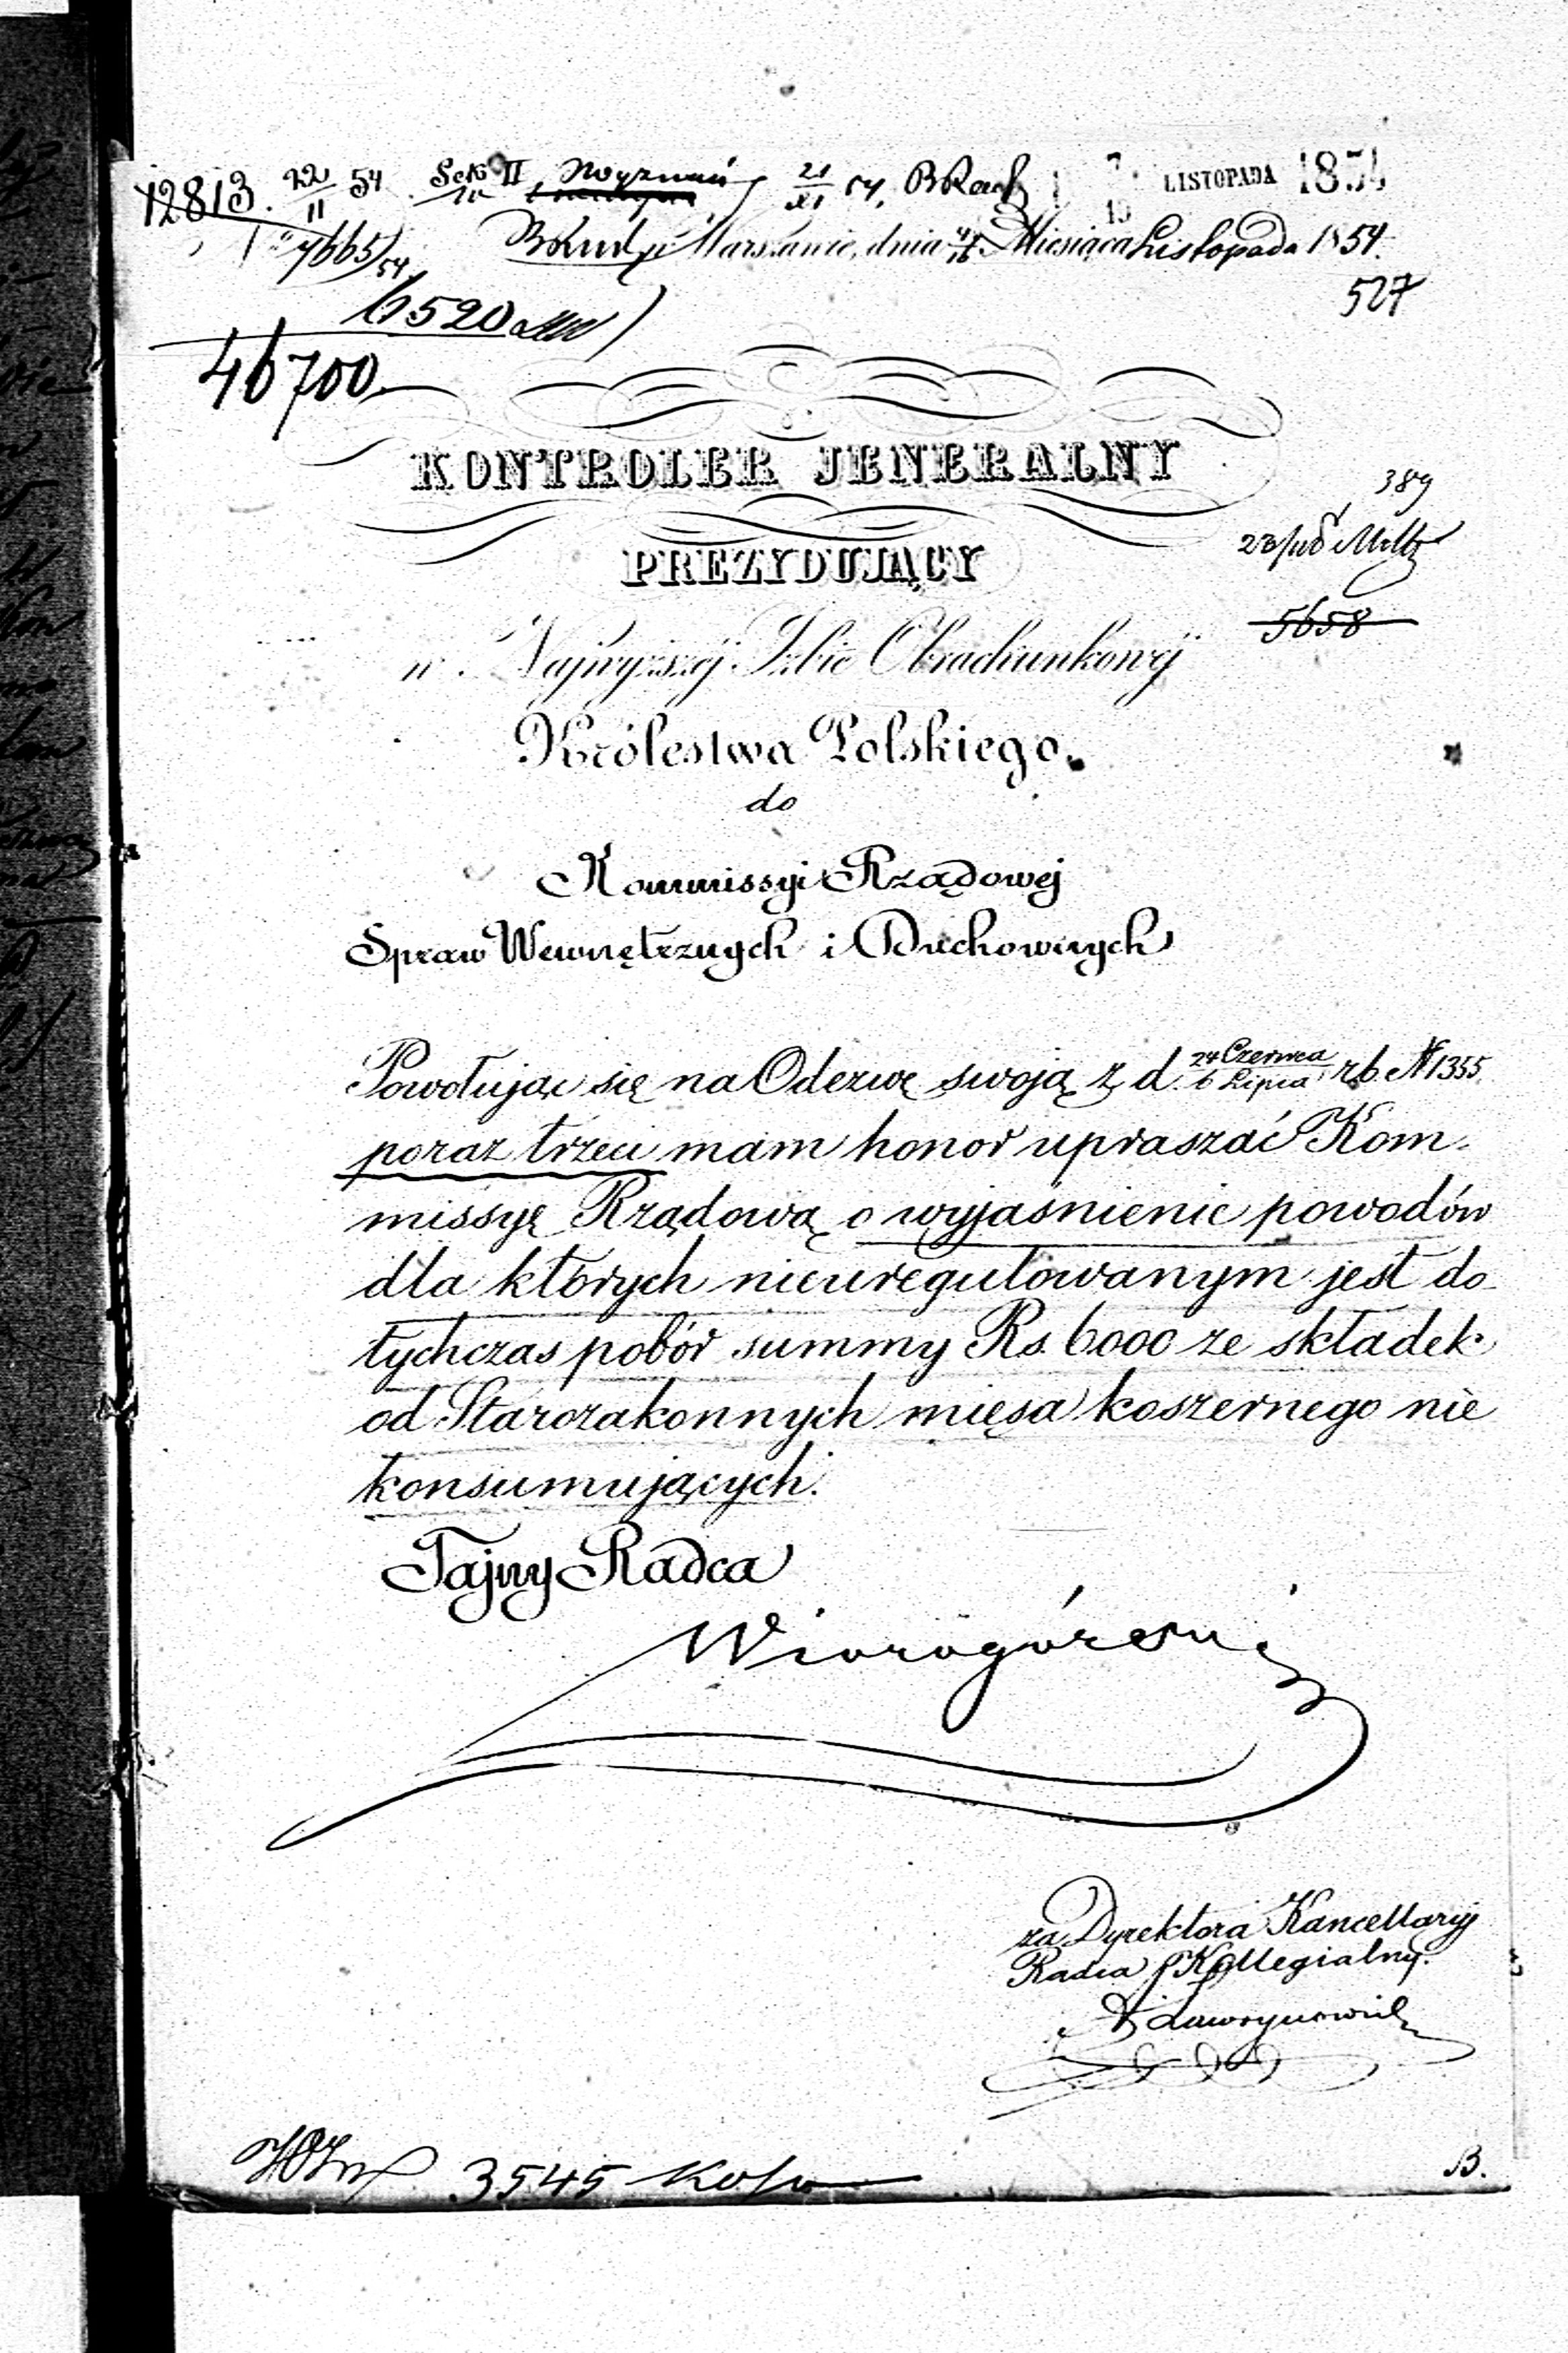 12813. 22/11 54 Sek II 21/XI 54. LISTOPADA 1854
w Warszawie, dnia 4/16 Miesiąca Listopada 1854.
7665/54
6520
527
46700
KONTROLER JENERALNY
389
PREZYDUJĄCY
5658
w Najwyższej Izbie Obrachunkowej
Królestwa Polskiego.
do
Kommissyi Rządowej
Spraw Wewnętrznych i Duchownych
Powołując się na Odezwę swoją z d. 24 Czerwca/6 Lipca r.b. N 1355
poraz trzeci mam honor upraszać Kom-
missyę Rządową o wyjaśnienie powodów
dla których nieuregulowanym jest do-
tychczas pobór summy Rs. 6000 ze składek
od Starozakonnych mięsa koszernego nie
konsumujących.
Tajny Radca
za Dyrektora Kancellaryj
Radca Kollegialny.
3545
B.